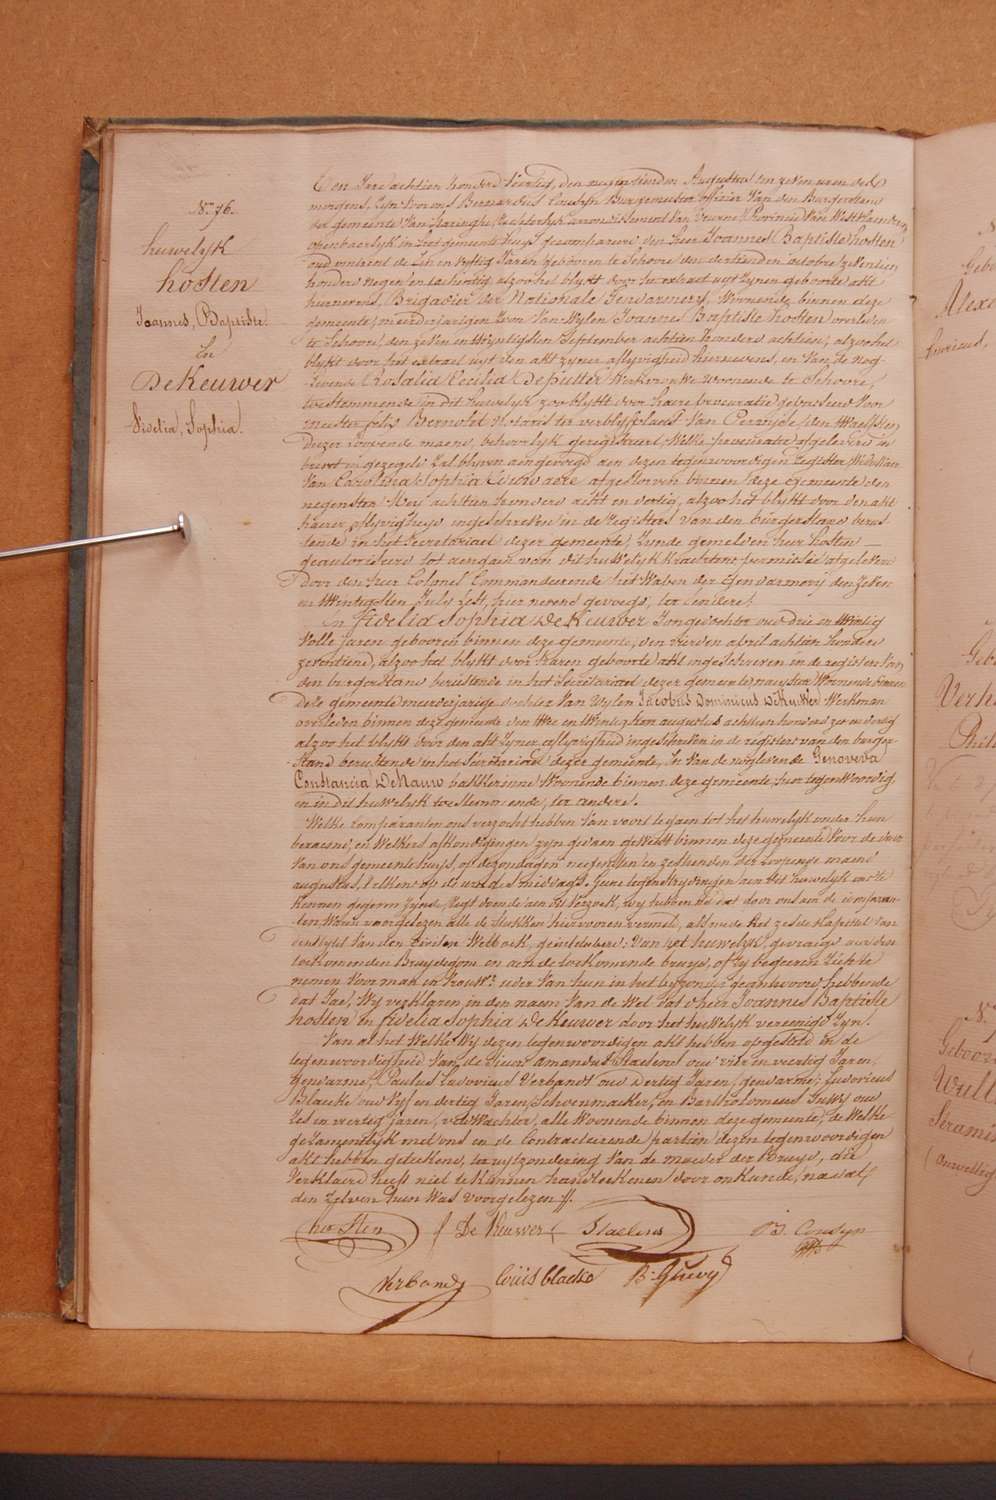 N.º 76.
huwelijk
hosten
Joannes, Baptiste
En
DeKeuwer
Fidelia, Sophia.
Een Jaer achtien honderd veertig, den negentienden Augustus ten zeven uren des
morgens, Zyn voor ons Bernardus Couvyn Burgemeester officier Van den Burgerstand
der gemeente Van Haringhe, Rechterlyk arrondissement Van Veurne Provincie Van Westvlaenderen
openbaerlyk in Zyn gemeente huys gecompareerd den heer Joannes Baptiste hosten
oud omtrent de Een en Vyftig Jaren geboren te Schoore den derthienden octobre zeventien
honderd negen en tachentig alzoo het blykt door het extract uyt Zynen geboorte akt
hiernevens, Brigadier der Nationale Gendarmery, Woonende binnen deze
gemeente, meerderjarigen Zoon Van Wylen Joannes Baptiste hosten overleden
te Schoore, den zeven en twyntigsten September achtien honderd achtien, alzoo het
blykt door het extract uyt den akt zyner aflyvigheid hiernevens, en Van de nog
levende Rosalia Cecilia Deputter Werkvrouwe woonende te Schoore,
toestemmende in dit huwelyk zoo blykt door haere procuratie gepasseerd Voor
meester felix Bernolet Notaris ter verblyfplaets Van Pervyse, den twaelfsten
Dezer loopende maend, behoorlyk geregistreerd, Welke procuratie afgeleverd in
brevet en gezegeld Zal blyven aengevoegd aen dezen tegenwoordigen register, Weduwaer
Van Carolina Sophia afgestorven binnen deze gemeente den
negensten Mey achtien honderd acht en dertig, alzoo het blykt door den akt
haerer aflyvigheyd ingeschreven in de registers van den burgerstand berus-
tende in het Secretariaet dezer gemeente; Zynde gemelden heer hosten
geautoriseerd tot aengaen van dit huwelyk krachtens permissie afgeleverd
Door den heer Colonel Commandeerende het Wapen der Gendarmery den Zeven
en twintigsten July lest, hier nevens gevoegd, ter eendere;
En fidelia Sophia DeKeuwer Jonge dochter oud drie en twintig
volle Jaren geboren binnen deze gemeente, den vierden april achtien honderd
zeventiend, alzoo het blykt door haren geboorte akt ingeschreven in de register Van
den burgerstand berustende in het Secretariaet dezer gemeente, naeyster Woonende binnen
Deze gemeente meerderjarige dochter Van Wylen Jacobus Dominicus DeKeuwer Werkman
overleden binnen deze gemeente den twee en twintigsten augustus achtien honderd zes en dertig
alzoo het blykt door den akt Zyner aflyvigheid ingeschreven in de registers van den burger-
-stand berustende in het Secretariaet dezer gemeente, En Van de nog levende Genoveva
Constancia DeNauw bakkerinne Woonende binnen deze gemeente, hier tegenwoordig
en in dit huwelyk toestemmende, ter andere.
Welke comparanten ons verzocht hebben Van voort te gaen tot het huwelyk onder hun
beraemd, en Welkers afkondigingen zyn gedaen geweest binnen deze gemeente Voor de deure
Van ons gemeente huys op de zondagen negensten en zesthienden der loopende maend
augustus, telkens op de ure des middags. Geene tegenstrydigheden aen het huwelyk ons te
kennen gegeven zynde, regt doende aen hun Verzoek, wy hebben na dat door ons aen de comparan-
-ten Waren voorgelezen alle de stukken hier voren vermeld, als mede het zesde kapittel Van
den tytel Van den Civilen Wetboek, geintituleerd: Van het huwelyk, gevraegd aen den
toekomenden Bruydegom en aen de toekomende bruyd, of Zy begeeren Zich te
nemen Voor man en Vrouw: ieder Van hun in het byzonder geantwoord hebbende
dat Jae; Wy verklaren in den naem Van de Wet dat d'heer Joannes Baptiste
hosten en fidelia Sophia DeKeuwer door het huwelyk vereenigd Zyn.
Van al het Welke Wy dezen tegenwoordigen akt hebben opgesteld in de
tegenwoordigheid Van de Sieurs Amandus Staelens oud vier en veertig Jaren,
gendarme; Paulus Ludovicus Verbandt oud dertig Jaren, gendarme; Ludovicus
Blaecke oud Vyf en dertig Jaren, Schoenmaeker; en Bartholomeus oud
Zes en veertig Jaren, veldWachter, alle Woonende binnen deze gemeente; de Welke
gezamentlyk met ons en de Contracteerende partien dezen tegenwoordigen
akt hebben geteekend, ter uytzondering Van de moeder der Bruyd, die
Verklaerd heeft niet te kunnen handteekenen door onkunde, na dat
den Zelven hun Was voorgelezen //.
hosten f De Keuwer Staelens B. Couvyn
Verbandt Louis blaeke